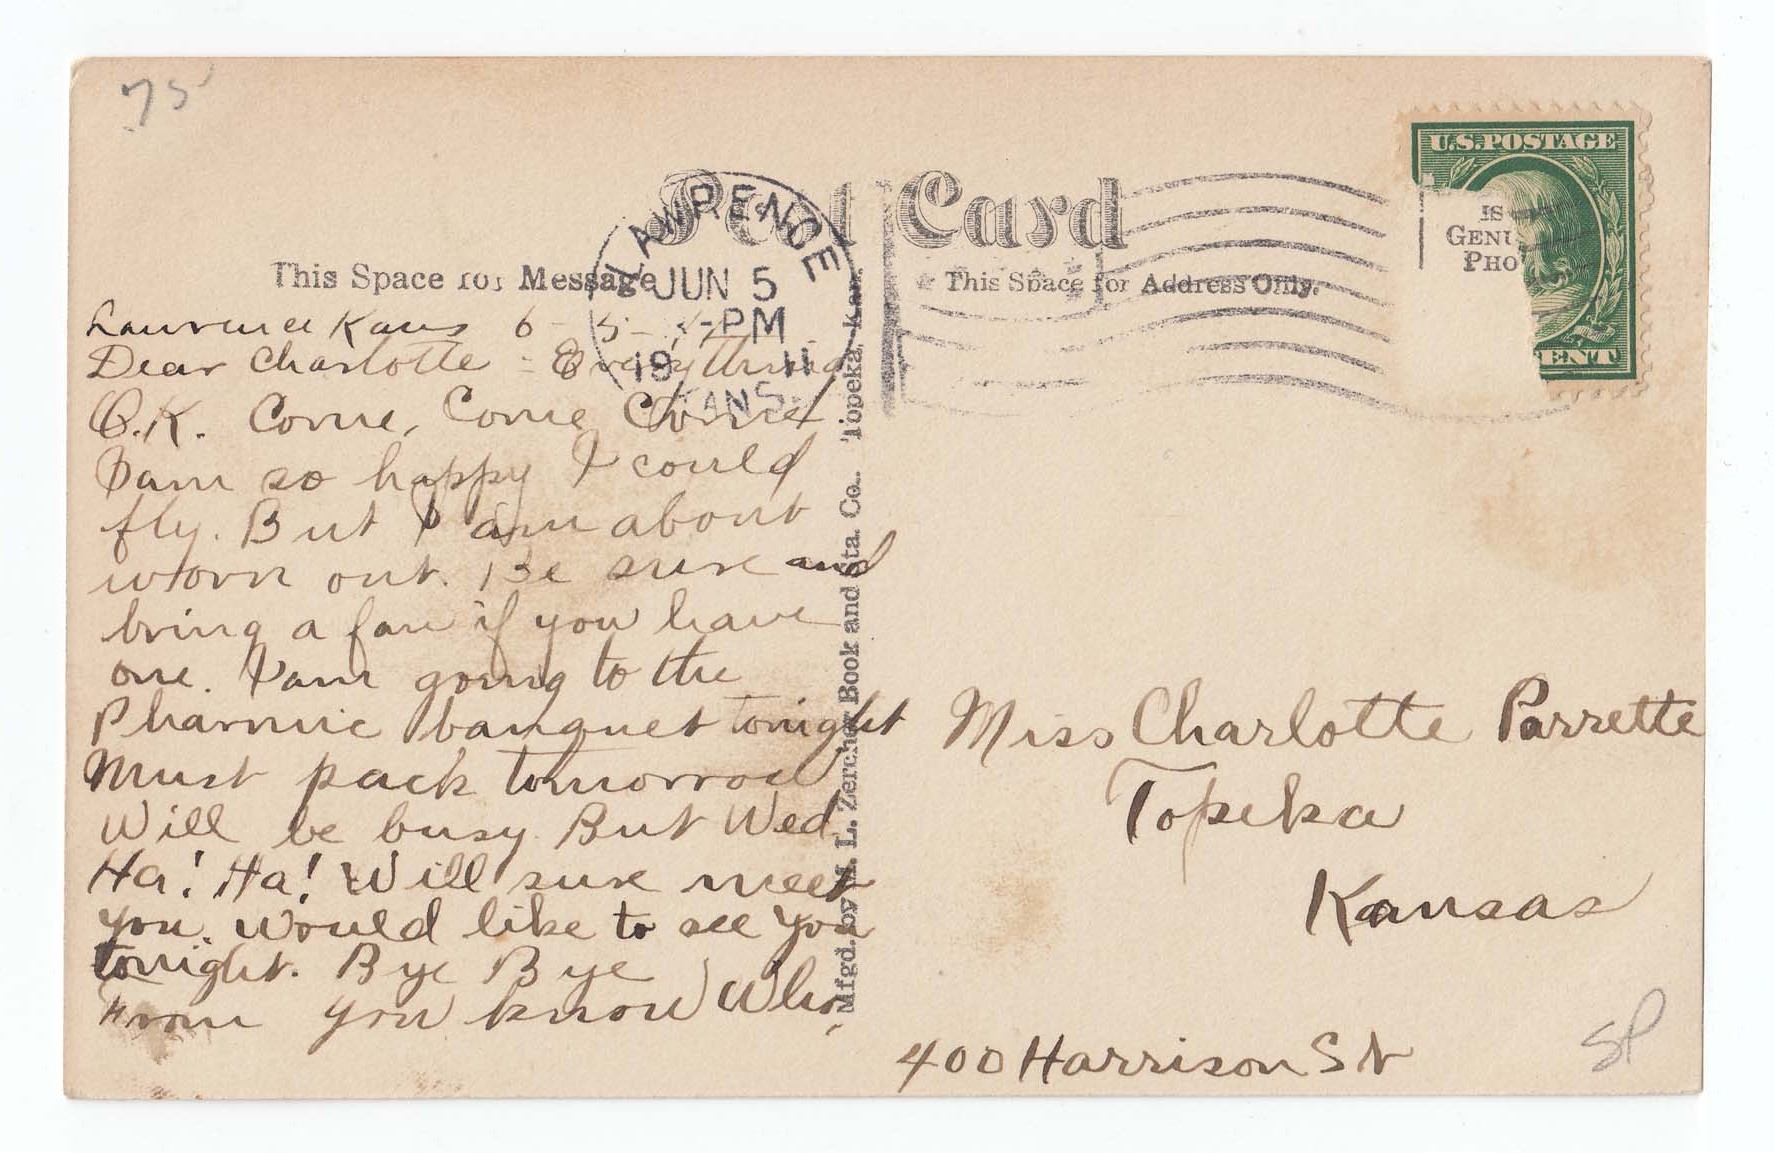 75
U.S. POSTAGE
CENT
IS
GENU
PHO
Post Card
LAWRENCE
JUN 5
-PM
1911
KANS.
This Space for Message
This Space for Address Only.
Lawrence Kans 6-5-
Dear Charlotte = Everything
O.K. Come, Come Come
I am so happy I could
fly. But I am about
worn out. Be sure and
bring a fan if you have
one. I am going to the
Pharmic banquet tonight
Must pack tomorrow
Will be busy. But Wed.
Ha! Ha! Will sure meet
you. Would like to see you
tonight. Bye Bye
From you know Who,
Mfgd. by M. L. Zercher Book and Sta. Co. Topeka, Kan.
Miss Charlotte Parrette
Topeka
Kansas
400 Harrison St